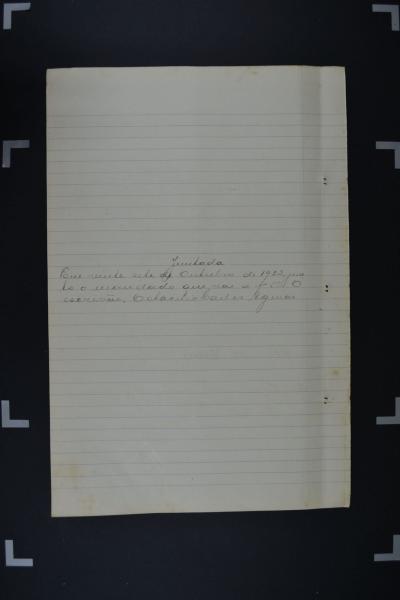 Juntada
Em vinte sete de Outubro de 1922, jun
to o mandado que vae a f. O
escrivão,